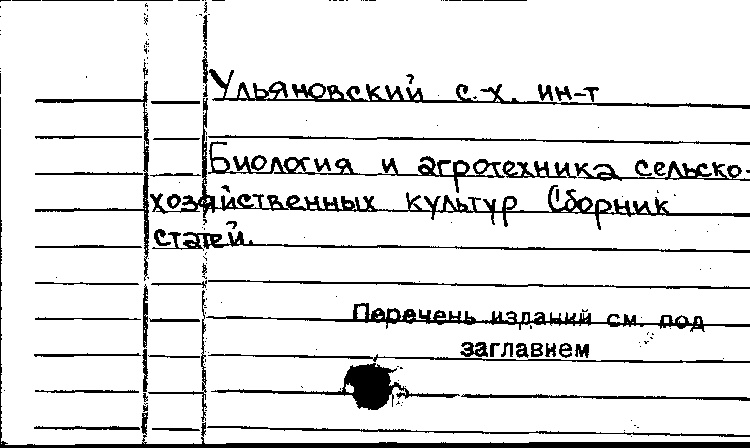 Ульяновский с.-х. ин-т
Биология и агротехника сельско-
хозяйственных культур Сборник
статей.
Перечень изданий см. под
заглавием